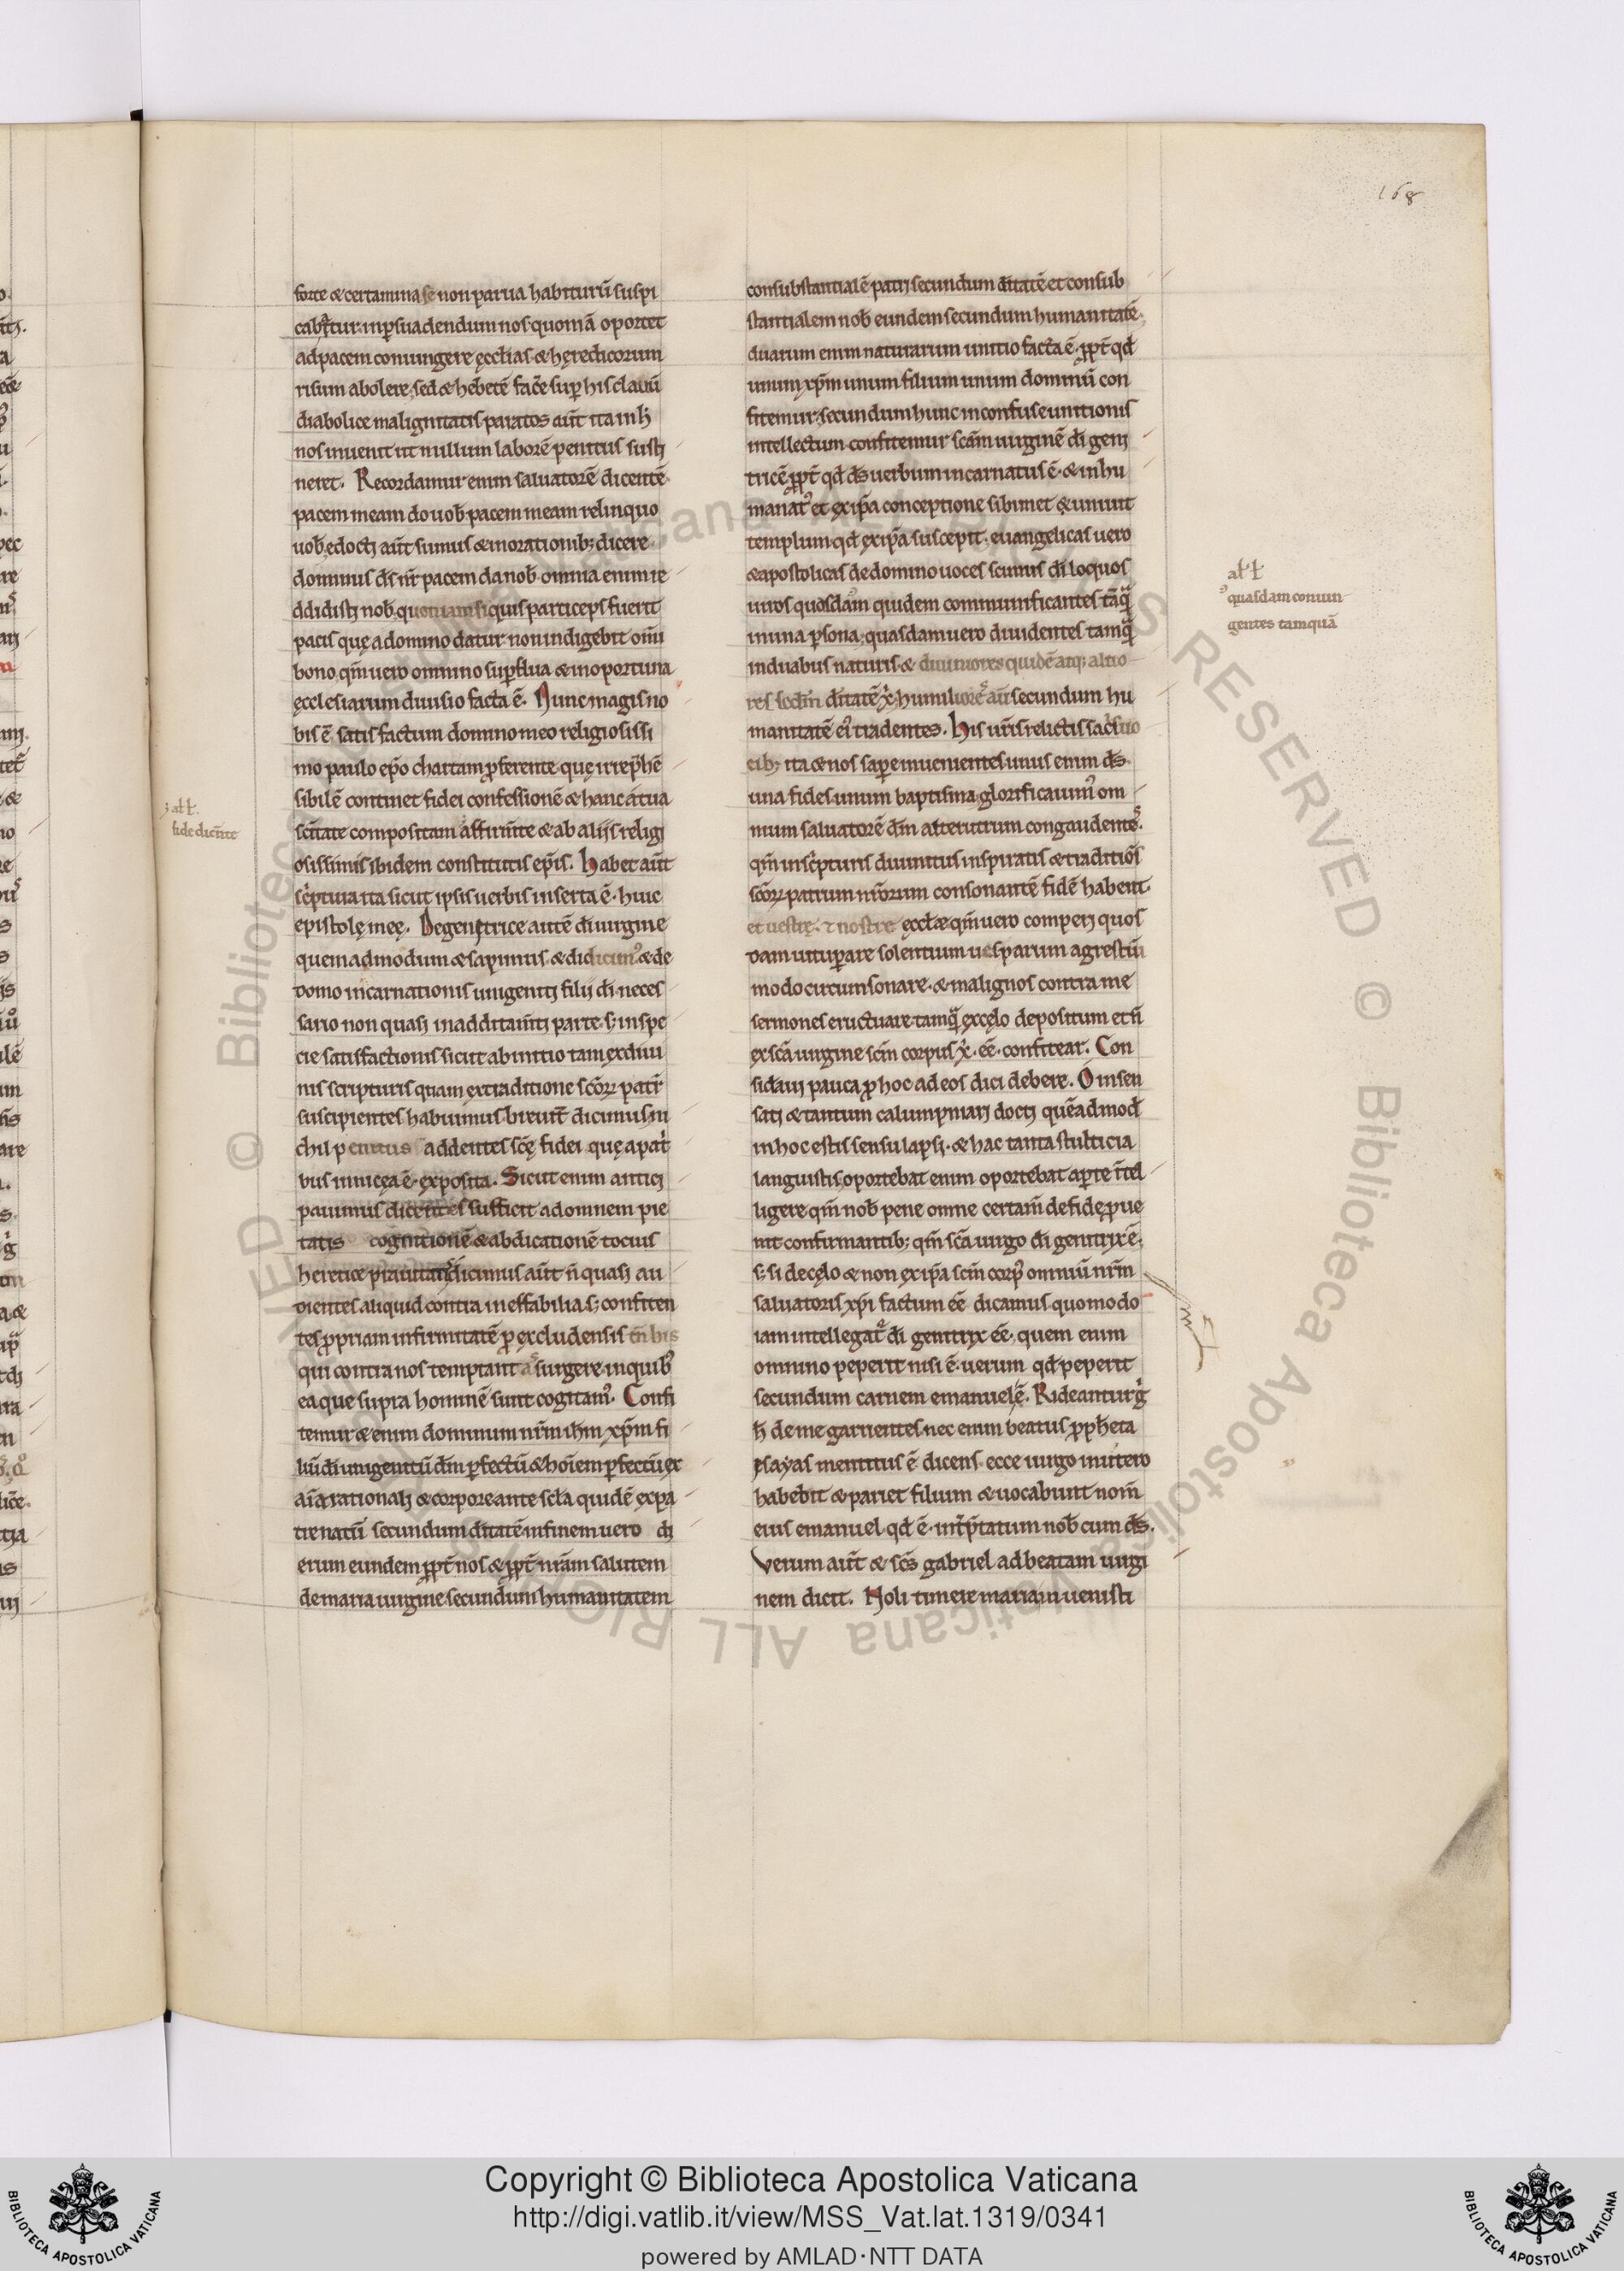 168
forte & certamina se non parua habiturū suspi
cabat̃tur. inp̱suadendum nos. quom̄ā oportet
ad pacem coniungere ęcclias. & hęredicorum
risum abolere, sed & hebetē fac̄e sup̱ his clauū
diabolice malignitatis. paratos aūt ita in h̄
nos inuenit ut nullum laborē penitus susti
neret. Recordamur enim saluatorē dicentē.
pacem meam do uob̄. pacem meam relinquo
uob̄. edocti aūt sumus & in orationib; dicere.
dominus d̄s nr̄ pacem da nob̄. omnia enim re
ddidisti nob̄. quoniam si quis particeps fuerit
pacis quę a domino datur. non indigebit om̄i
bono. qm̄ uero omnino sup̱flua & inoportuna
ęcclesiarum diuisio facta ē. Nunc magis no
bis ē satis factum domino meo religiosissi
mo paulo ep̄o chartam p̱ferente. quę irrep̄hē
sibilē continet fidei confessionē. & hanc a tua
sc̄itate compositam affirm̄te & ab alijs religi
osissimis ibidem constitutis ep̄is. Habet aūt
sc̄ptura ita sicut ipsis uerbis inserta ē. huic
epistolę meę. De genitrice autē d̄i uirgine
quemadmodum & sapimus. & didicim⁹. & de
domo incarnationis unigeniti filij d̄i. neces
sario non quasi in additam̄ti parte. s; in spe
cie satisfactionis sicut ab initio tam ex diui
nis scripturis quam ex traditione sc̄orꝝ patr̄
suscipientes habuimus breuit̄ dicimus. ni
chil penitus addentes sc̄ę fidei. quę a pat̄
bus in nicęa ē. exposita. Sicut enim antici
pauimus dicentes sufficit ad omnem pie
tatis cognitionē & abdicationē tocius
heretice prauitatis. dicimus aūt n̄ quasi au
dientes aliquid contra ineffabilia. s; confiten
tes p̱priam infirmitatē
qui contra nos temptant assurgere. in quib⁹
ea que supra hominē sunt cogitam⁹. Confi
temur & enim dominum nr̄m ih̄m xp̄m fi
liū d̄i unigenitū. d̄m p̱fectū & hoīem p̱fectū ex
aīa rationali & corpore. ante sc̄la quidē ex pa
tre natū secundum d̄itatē. in finem uero di
erum eundem pp̱t̄ nos & pp̱t̄ nr̄am salutem
de maria uirgine secundum humanitatem
al̄ł.
fide dicn̄te
consubstantialē patri secundum d̄itatē et consub
stantialem nob̄ eundem secundum humanitatē.
duarum enim naturarum unitio facta ē. pp̱t̄ qd̄
unum xp̄m unum filium unum dominū con
fitemur. secundum hunc inconfuse unitionis
intellectum confitemur sc̄am uirginē d̄i geni
tricē. pp̱t̄ qd̄ d̄s uerbum incarnatus ē. & inhu
manat⁹. et ex ip̄a conceptione sibimet & uniuit
templum. qd̄ ex ip̄a suscepit. euangelicas uero
& apostolicas de domino uoces scimus. d̄i loquos
uiros quosdam quidem communificantes tāq̄
in una p̱sona. quasdam uero diuidentes. tamq̄
in duabus naturis. & diuiniores quidē atq; altio
res secdm̄ d̄itatē x̄. humiliores aūt secundum hu
manitatē ei⁹ tradentes. His ur̄is relictis sac̄s uo
cib; ita & nos sapere inuenientes. unus enim d̄s.
una fides. unum baptisma. glorificauim⁹ om
nium saluatorē d̄m. alterutrum congaudentes.
qm̄ in sc̄pturis diuinitus inspiratis & traditiōs
sc̄orꝝ patrum nr̄orum consonantē fidē habent.
et uestrę. & nostre ęccl̄æ. qm̄ uero comperi quos
dam uitup̱are solentium uesparum agrestiū
modo circumsonare. & malignos contra me
sermones eructuare. tamq̄ ex cęlo depositum et n̄
ex sc̄a uirgine sc̄m corpus x̄. eē. confitear. Con
sidaui pauca p̱ hoc ad eos dici debere. O insen
sati & tantum calumpniari docti quēadmod̄
in hoc estis sensu lapsi. & hac tanta stulticia
languistis. oportebat enim oportebat ap̱te īt̄el
ligere qm̄ nob̄ pene omne certam̄ de fide. p̱ue
nit confirmantib; qm̄ sc̄a uirgo d̄i genitrix ē.
s; si de cęlo & non ex ip̄a sc̄m corp⁹ omniū nr̄m
saluatoris xp̄i factum eē dicamus. quomodo
iam intellegat̄ d̄i genitrix eē. quem enim
omnino peperit nisi ē. uerum qd̄ peperit
secundum carnem emanuelē. Rideantur ḡ
h̄ de me garrientes. nec enim beatus p̱pheta
esayas mentitus ē dicens. ecce uirgo in utero
habebit & pariet filium & uocabunt nom̄
eius emanuel. qd̄ ē. int̄p̄tatum nob̄cum d̄s.
Verum aūt & sc̄s gabriel ad beatam uirgi
nem dicit. Noli timere mariam uenisti
al̄ ł
quasdam coniun
gentes tamquā
Copyright © Biblioteca Apostolica Vaticana
http://digi.vatlib.it/view/MSS_Vat.lat.1319/0341
powered by AMLAD·NTT DATA
BIBLIOTECA APOSTOLICA VATICANA
BIBLIOTECA APOSTOLICA VATICANA
© Biblioteca Apostolica Vaticana ALL RIGHTS RESERVED © Biblioteca Apostolica Vaticana ALL RIGHTS RESERVED